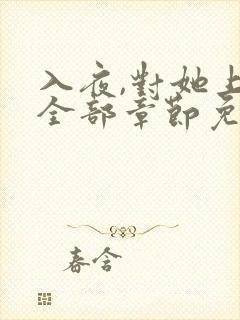 入夜,對她上
全部章節免
春含